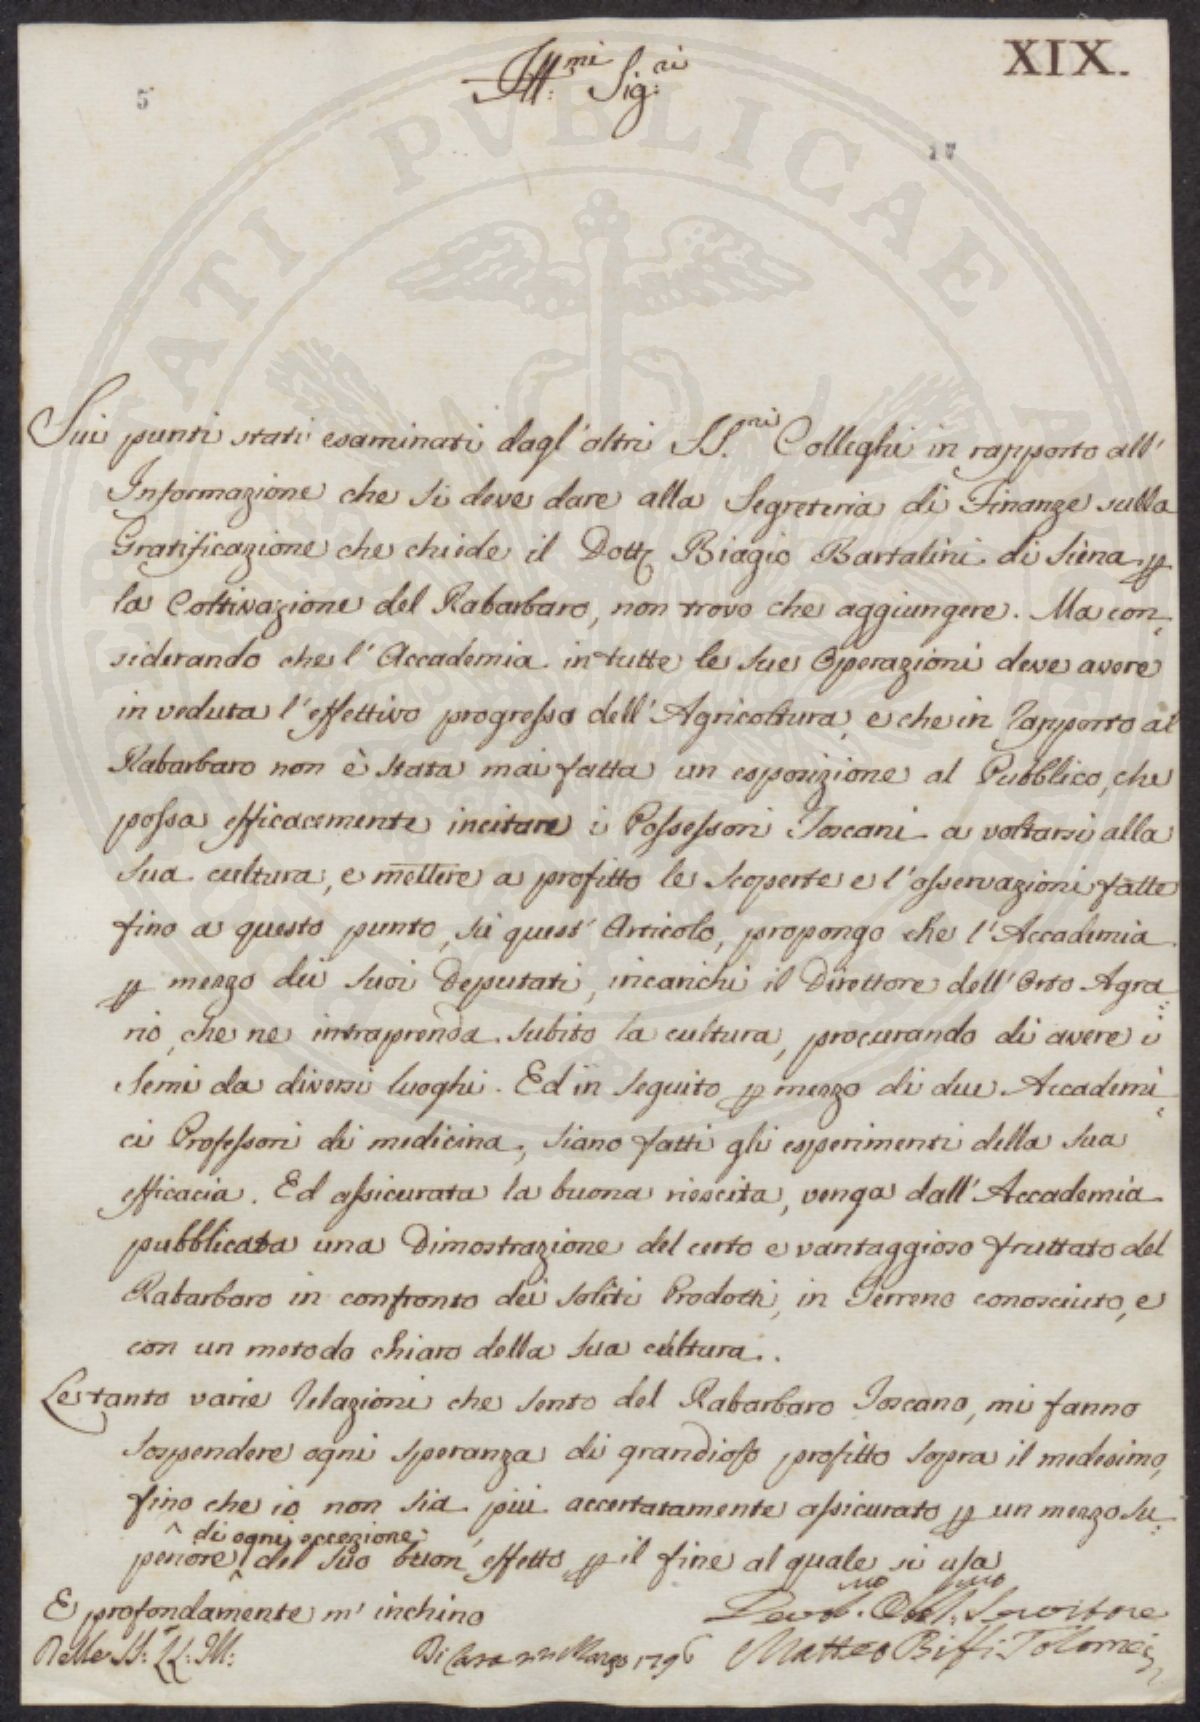 XIX.
Ill:mi Sig:ri
5
17
Sui punti stati esaminati dagl'altri SS.ri Colleghi in rapporto all'
Informazione che si deve dare alla Segreteria di Finanze sulla
Gratificazione che chiede il Dott. Biagio Bartalini di Siena p
la Coltivazione del Rabarbaro, non trovo che aggiungere. Ma con-
siderando che l'Accademia in tutte le sue Operazioni deve avere
in veduta l'effettivo progresso dell'Agricoltura, e che in rapporto al
Rabarbaro non è stata mai fatta un esposizione al Pubblico, che
possa efficacemente incitare i Possessori Toscani a voltarsi alla
sua cultura, e mettere a profitto le scoperte e l'osservazioni fatte
fino a questo punto, su quest'Articolo, propongo che l'Accademia
p mezzo dei suoi Deputati, incarichi il Direttore dell'Orto Agra=
rio, che ne intraprenda subito la cultura, procurando di avere i
semi da diversi luoghi. Ed in seguito p mezzo di due Accademi=
ci Professori di medicina, siano fatti gli esperimenti della sua
efficacia. Ed assicurata la buona riescita, venga dall'Accademia
pubblicata una Dimostrazione del certo e vantaggioso fruttato del
Rabarbaro in confronto dei soliti Prodotti, in Terreno conosciuto, e
con un metodo chiaro della sua cultura.
Le tanto varie relazioni che sento del Rabarbaro Toscano, mi fanno
sospendere ogni speranza di grandioso profitto sopra il medesimo,
fino che io non sia più accertatamente assicurato p un mezzo su=
di ogni eccezione
periore del suo buon effetto p il fine al quale si usa
E profondamente m'inchino
Devot.mo Obbl:mo Servitore
Delle SS: LL: Ill:
Di Casa Marzo 1796
Matteo Biffi Tolomei
PVBLICAE